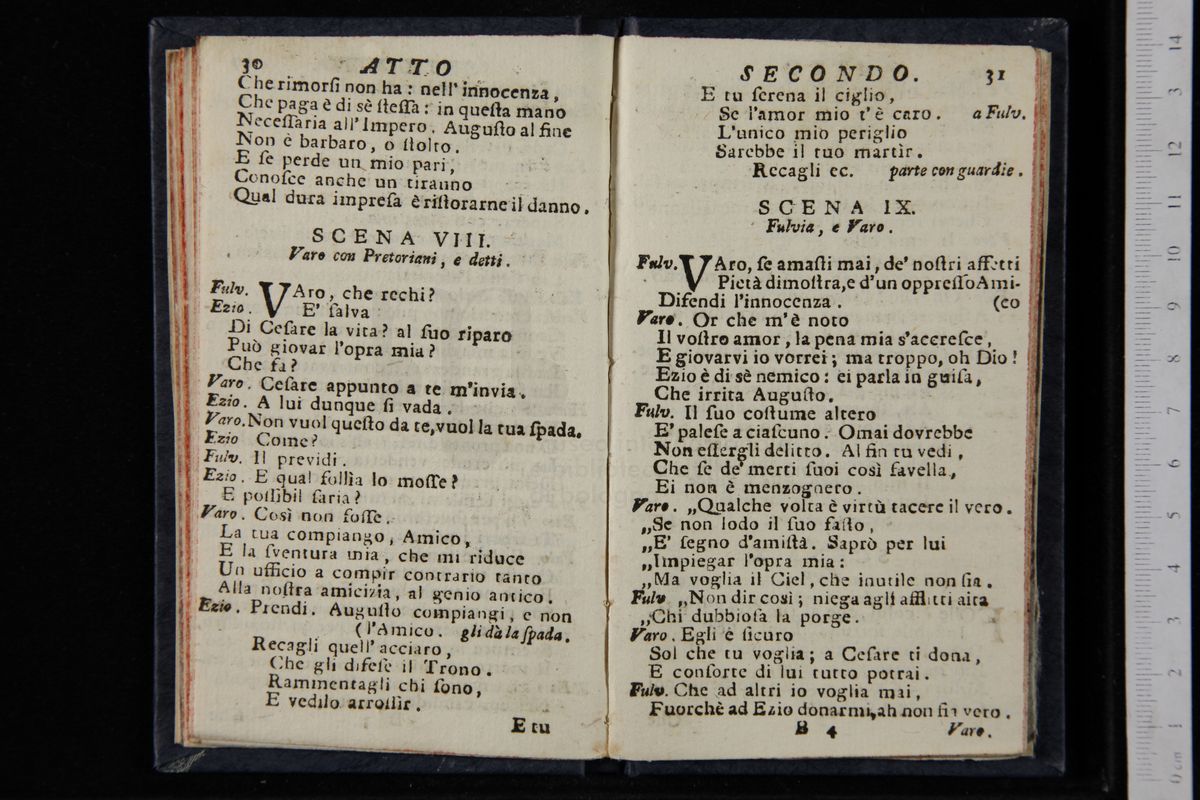 30 ATTO
Che rimorſi non ha: nell' innocenza,
Che paga è di sè ſteſſa: in queſta mano
Neceſſaria all'Impero. Auguſto al fine
Non è barbaro, o ſtolto.
E ſe perde un mio pari,
Conoſce anche un tiranno
Qual dura impreſa è riſtorarne il danno.
SCENA VIII.
Varo con Pretoriani, e detti.
Fulv. VAro, che rechi?
Ezio. E' ſalva
Di Ceſare la vita? al ſuo riparo
Può giovar l'opra mia?
Che fa?
Varo. Ceſare appunto a te m'invia.
Ezio. A lui dunque ſi vada.
Varo. Non vuol queſto da te, vuol la tua ſpada.
Ezio Come?
Fulv. Il previdi.
Ezio. E qual follìa lo moſſe?
E poſſibil ſaria?
Varo. Così non foſſe.
La tua compiango, Amico,
E la ſventura mia, che mi riduce
Un ufficio a compir contrario tanto
Alla noſtra amicizia, al genio antico.
Ezio. Prendi. Auguſto compiangi, e non
(l'Amico. gli dà la ſpada.
Recagli quell' acciaro,
Che gli difeſe il Trono.
Rammentagli chi ſono,
E vedilo arroſſir.
E tu
SECONDO. 31
E tu ſerena il ciglio,
Se l'amor mio t'è caro. a Fulv.
L'unico mio periglio
Sarebbe il tuo martìr.
Recagli ec. parte con guardie.
SCENA IX.
Fulvia, e Varo.
Fulv. VAro, ſe amaſti mai, de' noſtri affetti
Pietà dimoſtra, e d'un oppreſſo Ami-
Difendi l'innocenza. (co
Varo. Or che m'è noto
Il voſtro amor, la pena mia s'accreſce,
E giovarvi io vorrei; ma troppo, oh Dio!
Ezio è di sè nemico: ei parla in guiſa,
Che irrita Auguſto.
Fulv. Il ſuo coſtume altero
E' paleſe a ciaſcuno. Omai dovrebbe
Non eſſergli delitto. Al fin tu vedi,
Che ſe de' merti ſuoi così favella,
Ei non è menzognero.
Varo. „Qualche volta è virtù tacere il vero.
„Se non lodo il ſuo faſto,
„E' ſegno d'amiſtà. Saprò per lui
„Impiegar l'opra mia:
„Ma voglia il Ciel, che inutile non ſia.
Fulv „Non dir così; niega agli afflitti aita
„Chi dubbioſa la porge.
Varo. Egli è ſicuro
Sol che tu voglia; a Ceſare ti dona,
E conſorte di lui tutto potrai.
Fulv. Che ad altri io voglia mai,
Fuorchè ad Ezio donarmi, ah non ſia vero.
B 4 Varo.